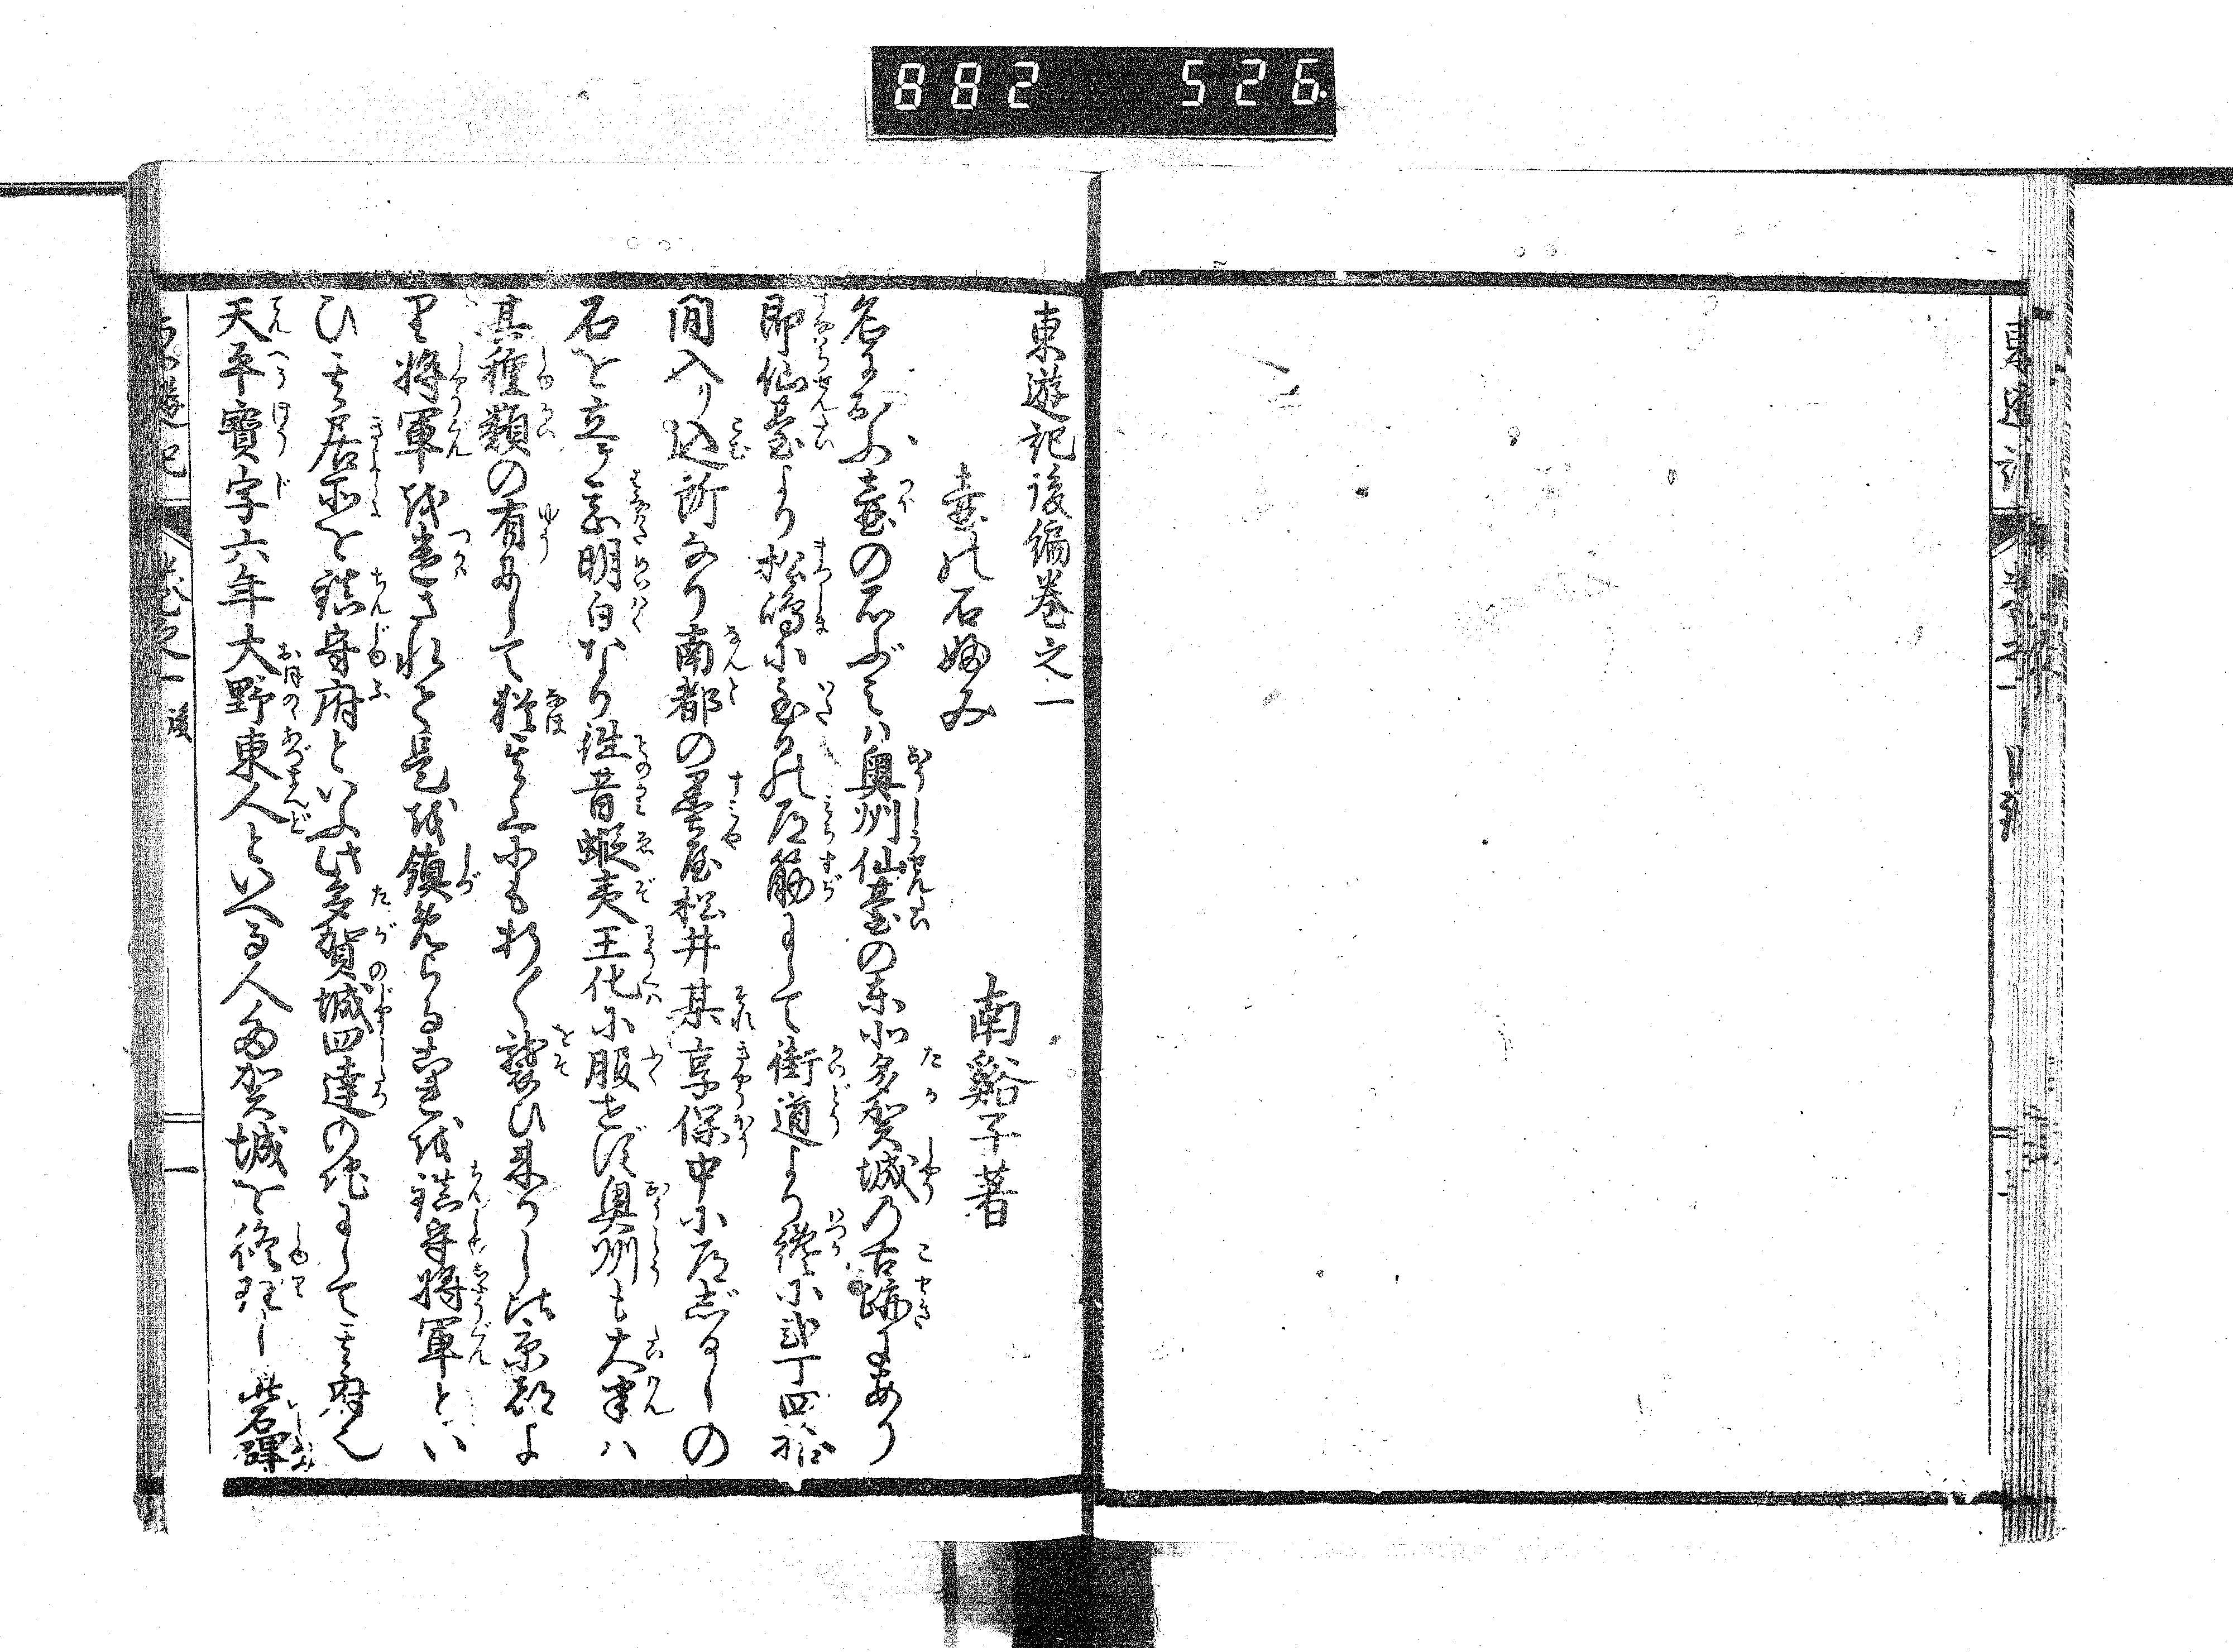 882 526
東遊記後編巻之一
南谿子著
壺の石婦み
名におふ壺の石ぶみハ奥州仙臺の東北多賀城乃古跡にあり
即仙臺より松嶋に至るの道筋にして街道より纔に弐丁四拾
間入り込所なり南都の墨屋松井某享保中に道しるしの
石を立て言明白なり往昔蝦夷王化に服せず奥州も大半ハ
其種類の有にして猶其上にも折々襲ひ来りし故京都よ
り将軍を遣されて是を鎮めらる是を鎮守将軍とい
ひ其居所を鎮守府といふ此多賀城四達の地にして其府也
天平寶字六年大野東人といへる人多賀城を修理し此石碑
東遊記 巻之一 後 一
東遊記 目録